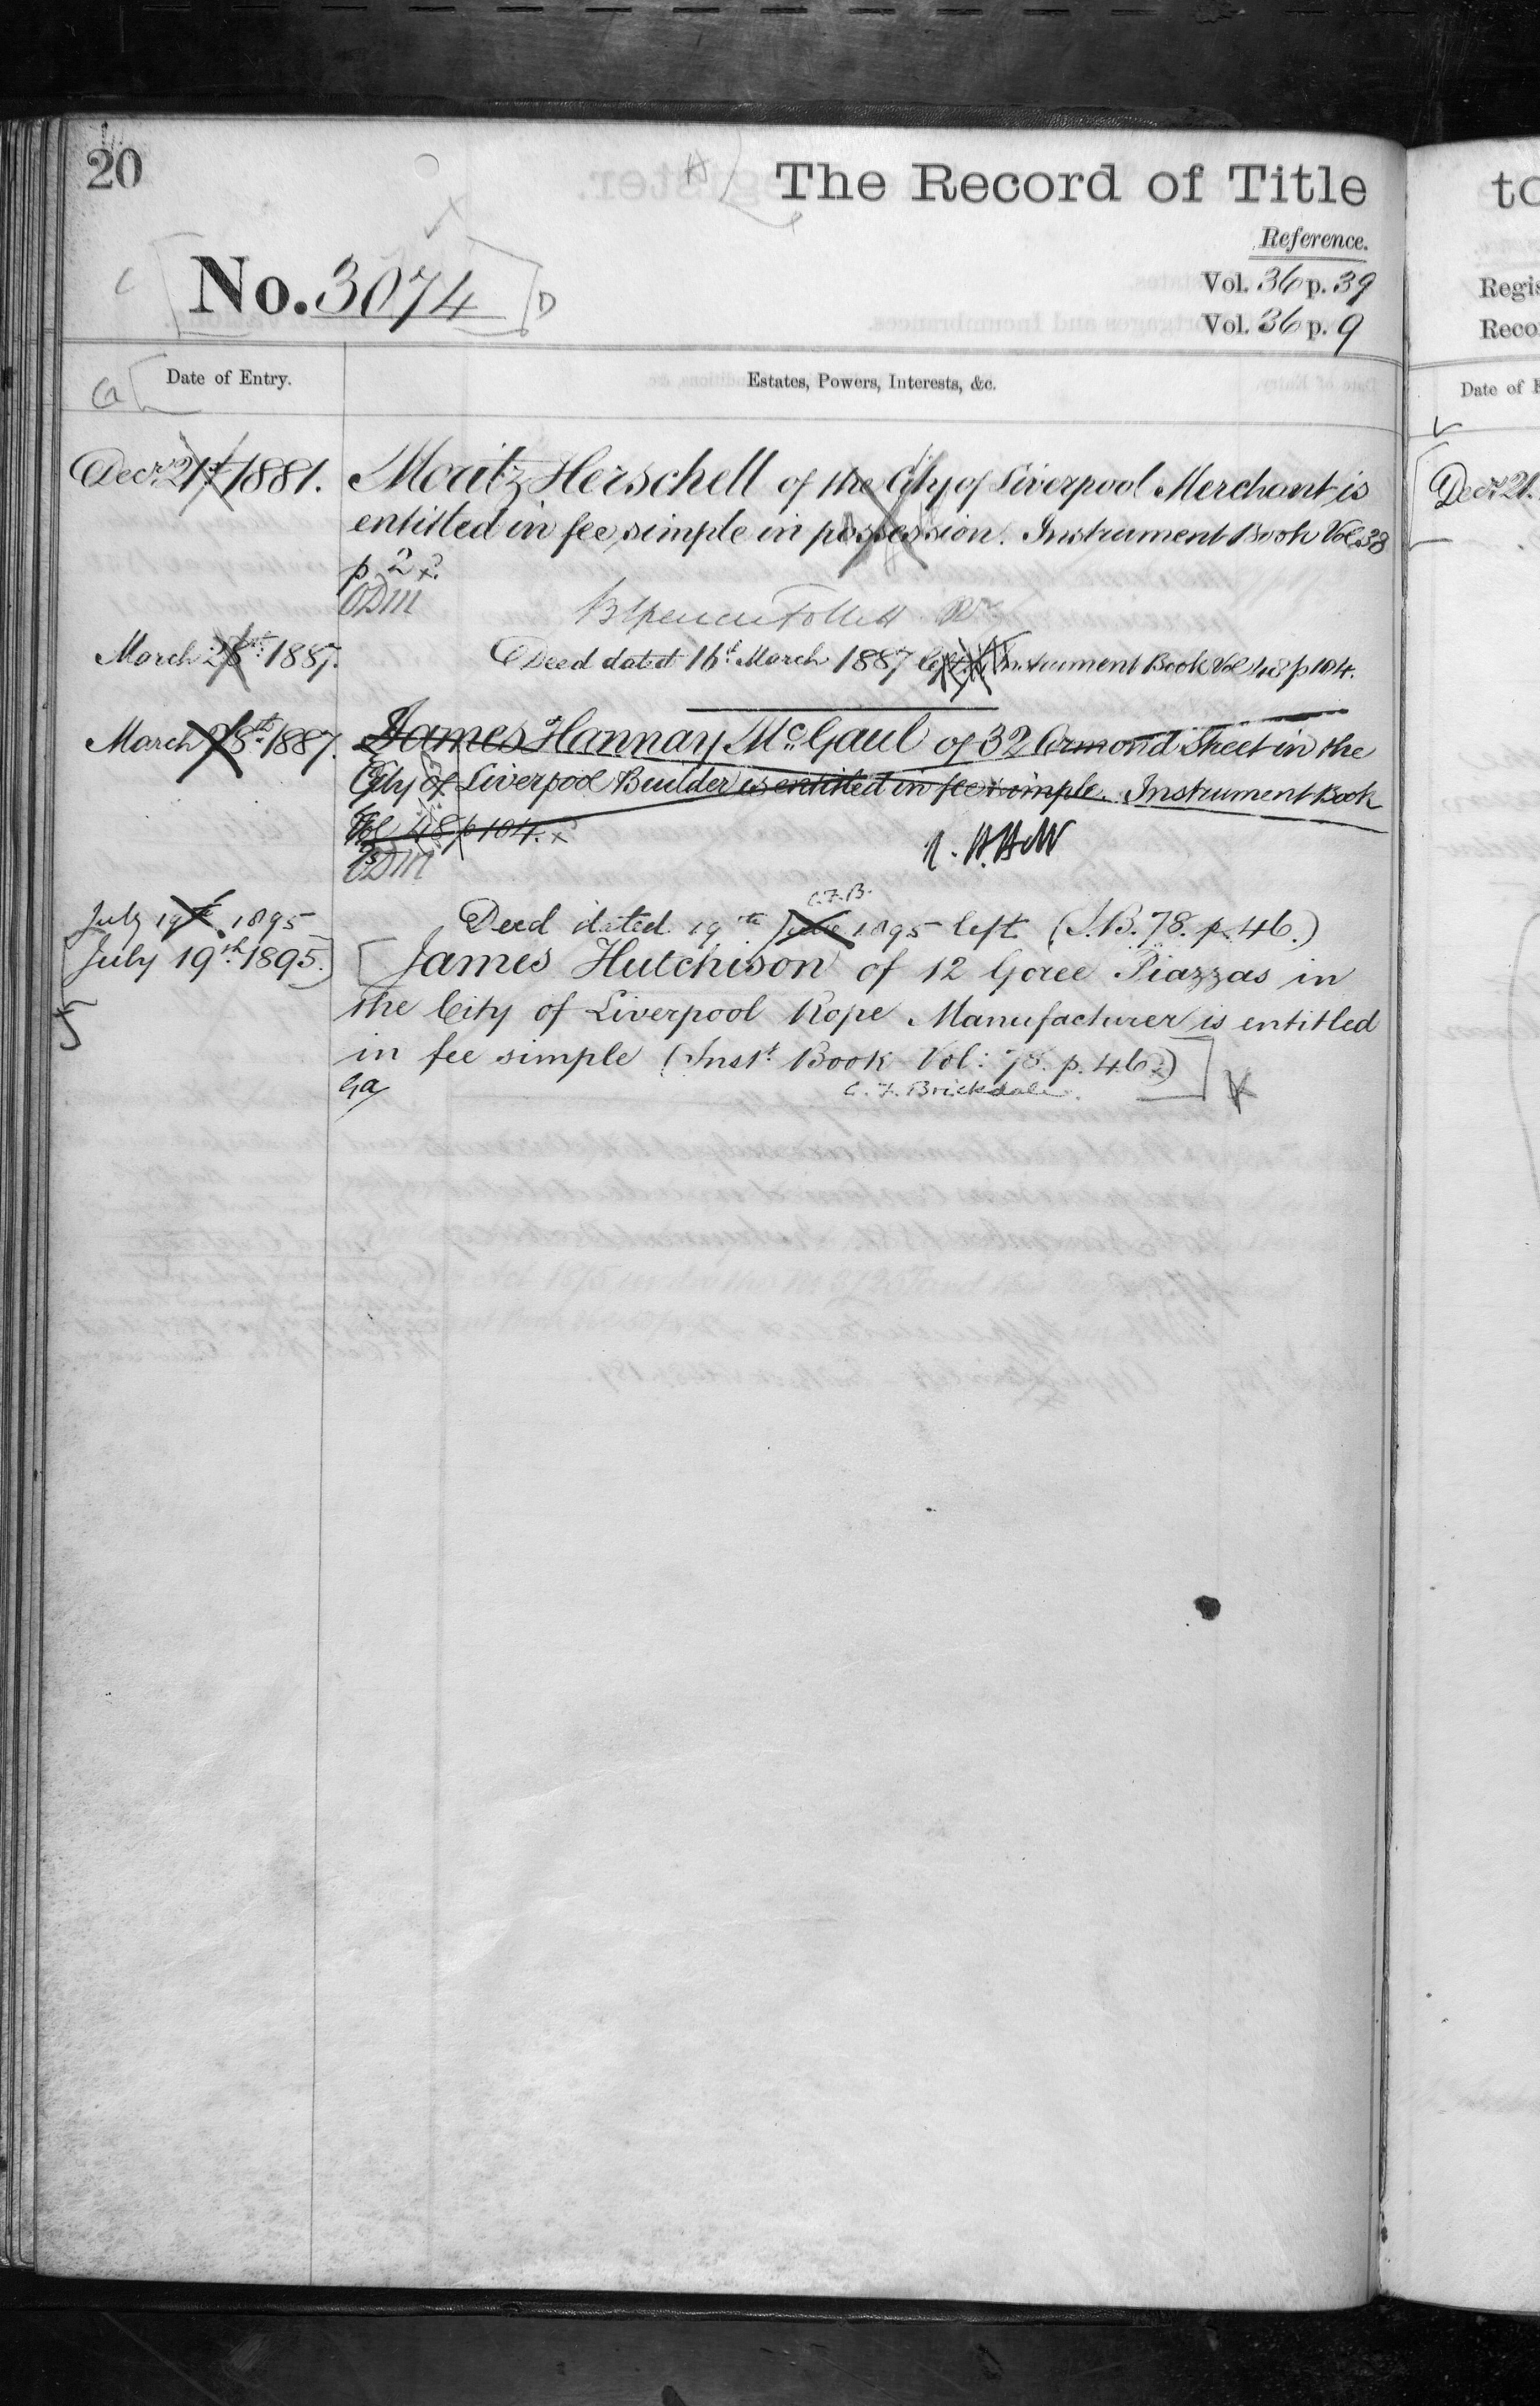 20
The Record of Title
Reference.
No. 3074
D
Vol. 36 p. 39
Vol. 36 p. 9
Date of Entry.
Estates, Powers, Interests, &c.
Decr. 21st 1881. Moritz Herschell of the City of Liverpool Merchant is
entitled in fee simple in possession. Instrument Book Vol. 38
p 2
ODM
March 28th 1887. Deed dated 16th March 1887 left Instrument Book Vol 48 p 104.
March 28th 1887. James Hannay McGaul of 32 Ormond Street in the
City of Liverpool Builder is entitled in fee simple. Instrument Book
Vol 48 p 104.
ODM
C.F.B.
July 19th 1895 Deed dated 19th June 1895 left (I.B. 78. p. 46.)
July 19th 1895. James Hutchison of 12 Goree Piazzas in
the City of Liverpool Rope Manufacturer is entitled
in fee simple (Inst. Book Vol: 78. p. 46)
C. F. Brickdale.
to
Regis
Reco
Date of E
Decr. 21.